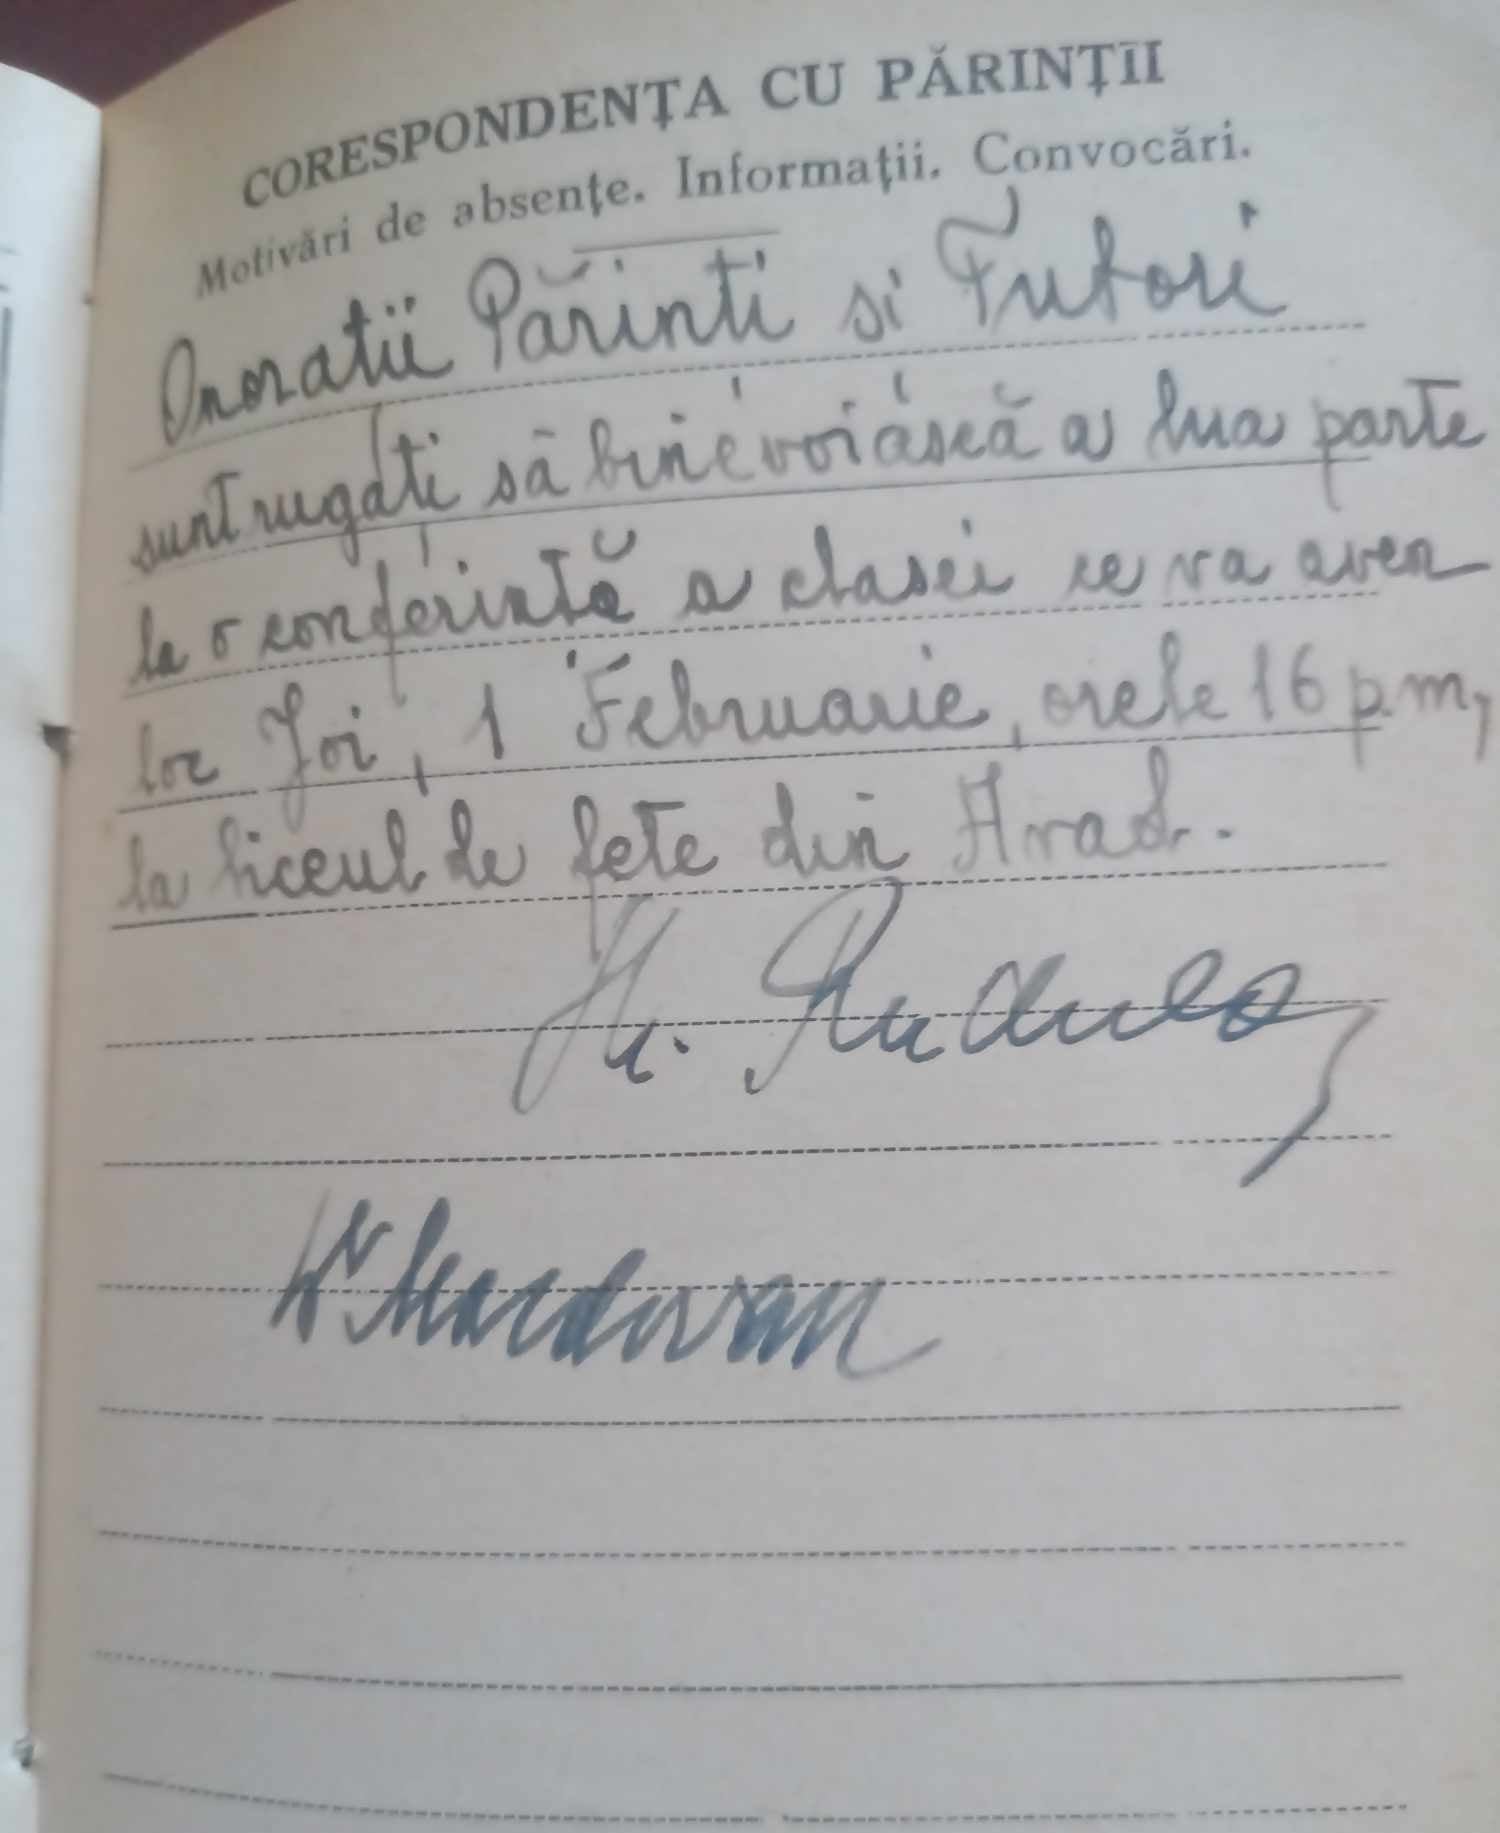 CORESPONDENȚA CU PĂRINȚII
Motivări de absențe. Informații. Convocări.
Onoratii Părinti si Tutori
sunt rugati să binevoiască a lua parte
la o conferintă a clasei ce va avea
loc Joi, 1 Februarie, orele 16 p.m,
la liceul de fete din Arad.